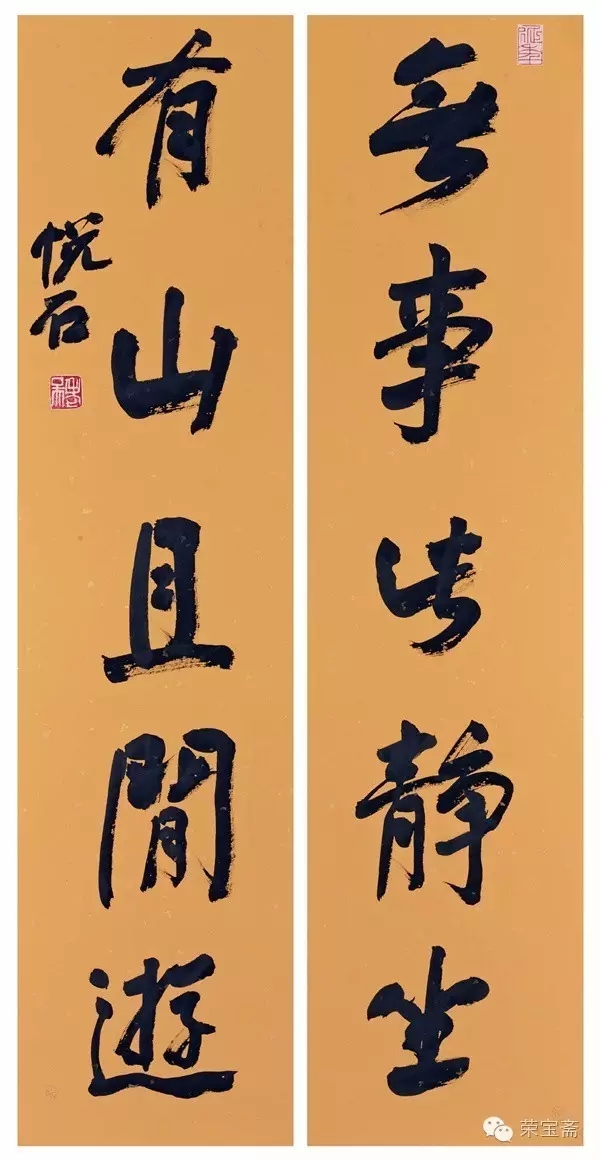 無事此静坐
有山且閒遊
悦石
荣宝斋